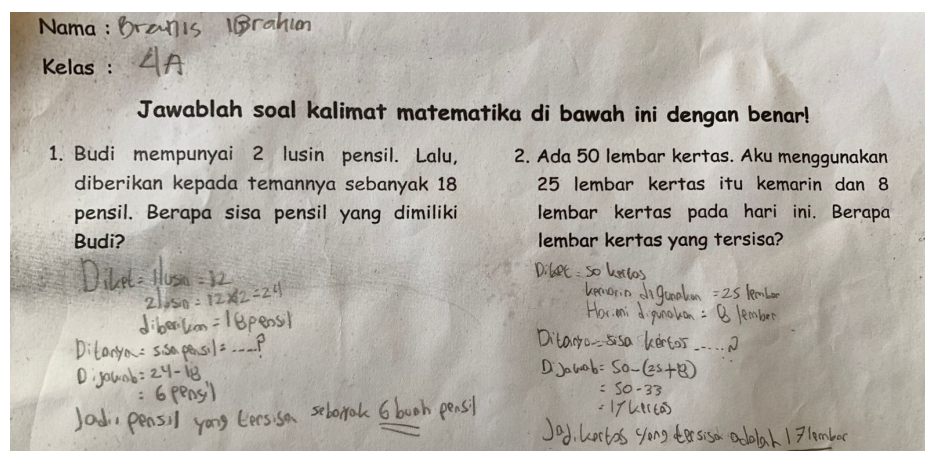 Nama : Branis IBrahim
Kelas : 4A
Jawablah soal kalimat matematika di bawah ini dengan benar!
1. Budi mempunyai 2 lusin pensil. Lalu,
diberikan kepada temannya sebanyak 18
pensil. Berapa sisa pensil yang dimiliki
Budi?
Diket = 1lusn = 12
2lusn = 12x2=24
diberikan = 18pensil
Ditanya = sisa pensil = ....?
Dijawab = 24-18
= 6 pensil
Jadi, pensil yang tersisa sebanyak 6 buah pensil
2. Ada 50 lembar kertas. Aku menggunakan
25 lembar kertas itu kemarin dan 8
lembar kertas pada hari ini. Berapa
lembar kertas yang tersisa?
Diket = 50 kertas
kemarin digunakan = 25 lembar
Hari ini digunakan = 8 lembar
Ditanya = sisa kertas .....?
Dijawab = 50-(25+8)
= 50-33
= 17 kertas
Jadi, kertas yang tersisa adalah 17 lembar